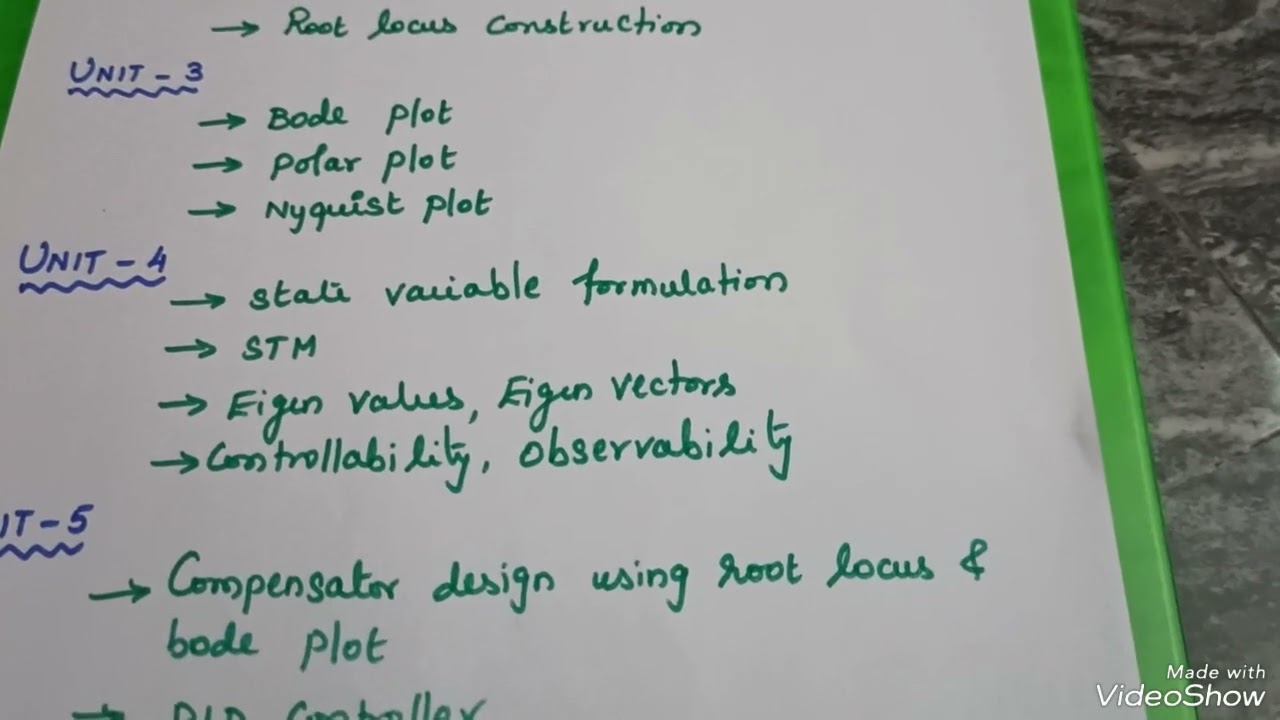 → Root locus construction
UNIT - 3
→ Bode plot
→ Polar plot
→ Nyquist plot
UNIT - 4
→ State variable formulation
→ STM
→ Eigen values, Eigen vectors
→ Controllability, Observability
IT - 5
→ Compensator design using root locus &
bode plot
→ PID Controller
Made with
VideoShow